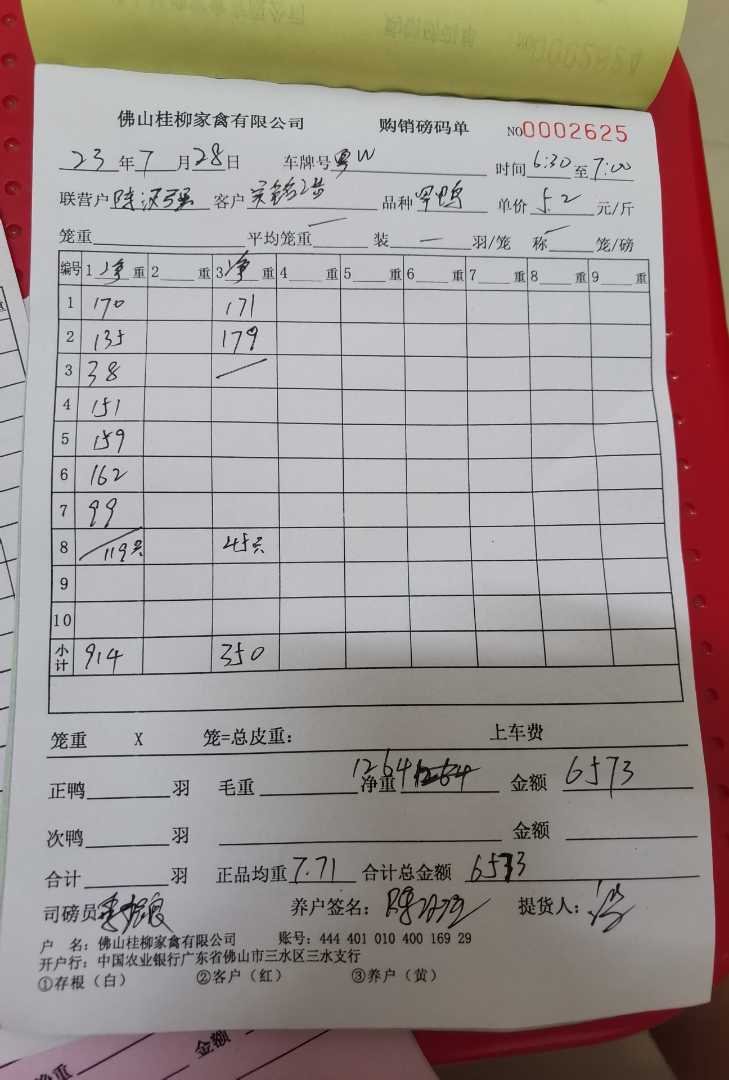 佛山桂柳家禽有限公司 购销磅码单 NO0002625
23年7月28日 车牌号粤W 时间6:30至7:00
联营户 客户 品种 单价 5.2 元/斤
笼重 平均笼重— 装—羽/笼 称—笼/磅
编号 1净重 2重 3净重 4重 5重 6重 7重 8重 9重
1 170 171
2 135 179
3 38 —
4 151
5 159
6 162
7 99
8 119只 45只
9
10
小计 914 350
笼重 X 笼=总皮重： 上车费
正鸭 羽 毛重 1264 净重 1264 金额 6573
次鸭 羽 金额
合计 羽 正品均重 7.71 合计总金额 6573
司磅员 养户签名： 提货人：
户 名：佛山桂柳家禽有限公司 账号：444 401 010 400 169 29
开户行：中国农业银行广东省佛山市三水区三水支行
①存根（白） ②客户（红） ③养户（黄）
净重 金额